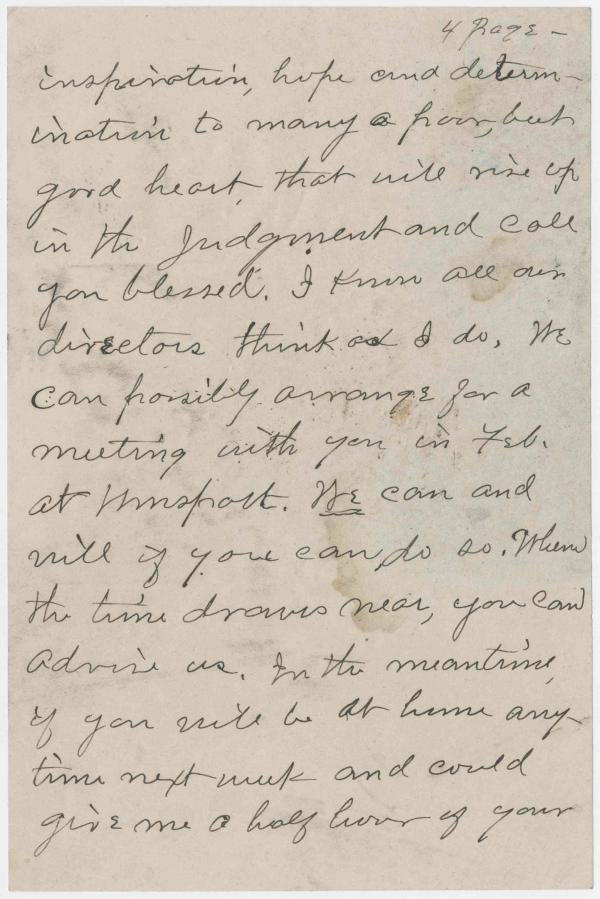 4 Page -
inspiration, hope and determ-
ination to many a poor, but
good heart, that will rise up
in the Judgment and call
you blessed. I know all our
directors think as I do. We
can possibly arrange for a
meeting with you in Feb.
at Wmsport. We can and
will if you can, do so. When
the time draws near, you can
advise us. In the meantime,
if you will be at home any-
time next week and could
give me a half hour of your